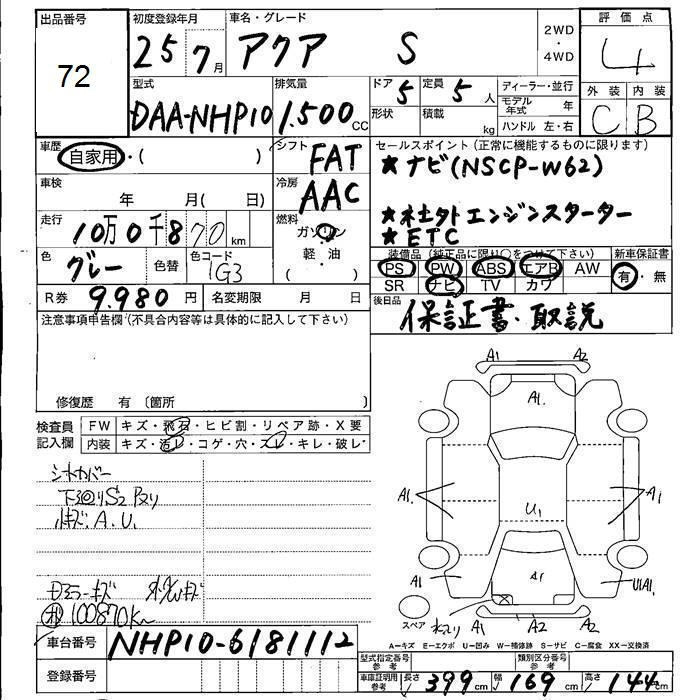 出品番号
72
初度登録年月
25 7月
車名・グレード
アクア S
2WD
・
4WD
評価点
4
外装 内装
C B
型式
DAA-NHP10
排気量
1.500 CC
ドア 5
形状
定員 5 人
積載 kg
ディーラー・並行
モデル年式 年
ハンドル 左・右
車歴
自家用・( )
シフト
FAT
車検
年 月( 日)
冷房
AAC
走行
10万0千870 km
燃料
ガソリン
軽・油
( )
色
グレー
色替
色コード
1G3
R券 9.980 円
名変期限 月 日
セールスポイント(正常に機能するものに限ります)
★ナビ(NSCP-W62)
★社外エンジンスターター
★ETC
装備品(純正品に限り○をつけて下さい)
PS PW ABS エアB AW
SR ナビ TV カワ
新車保証書
有・無
後日品
保証書・取説
注意事項申告欄(不具合内容等は具体的に記入して下さい)
修復歴 有 〔箇所 〕
検査員記入欄
FW キズ・飛石・ヒビ割・リペア跡・X要
内装 キズ・汚レ・コゲ・穴・スレ・キレ・破レ
シートカバー
下廻りS2
キズ.A.U.
100870Km
車台番号 NHP10-6181112
登録番号
A1 A2
A1.
A1.
A1
U1
A1
A1
U1A1
スペア
A1 A2 A2
A=キズ E=エクボ U=凹み W=補修跡 S=サビ C=腐食 XX=交換済
型式指定番号 参考
類別区分番号 参考
車庫証明用 参考
長さ 399cm 幅 169cm 高さ 144cm